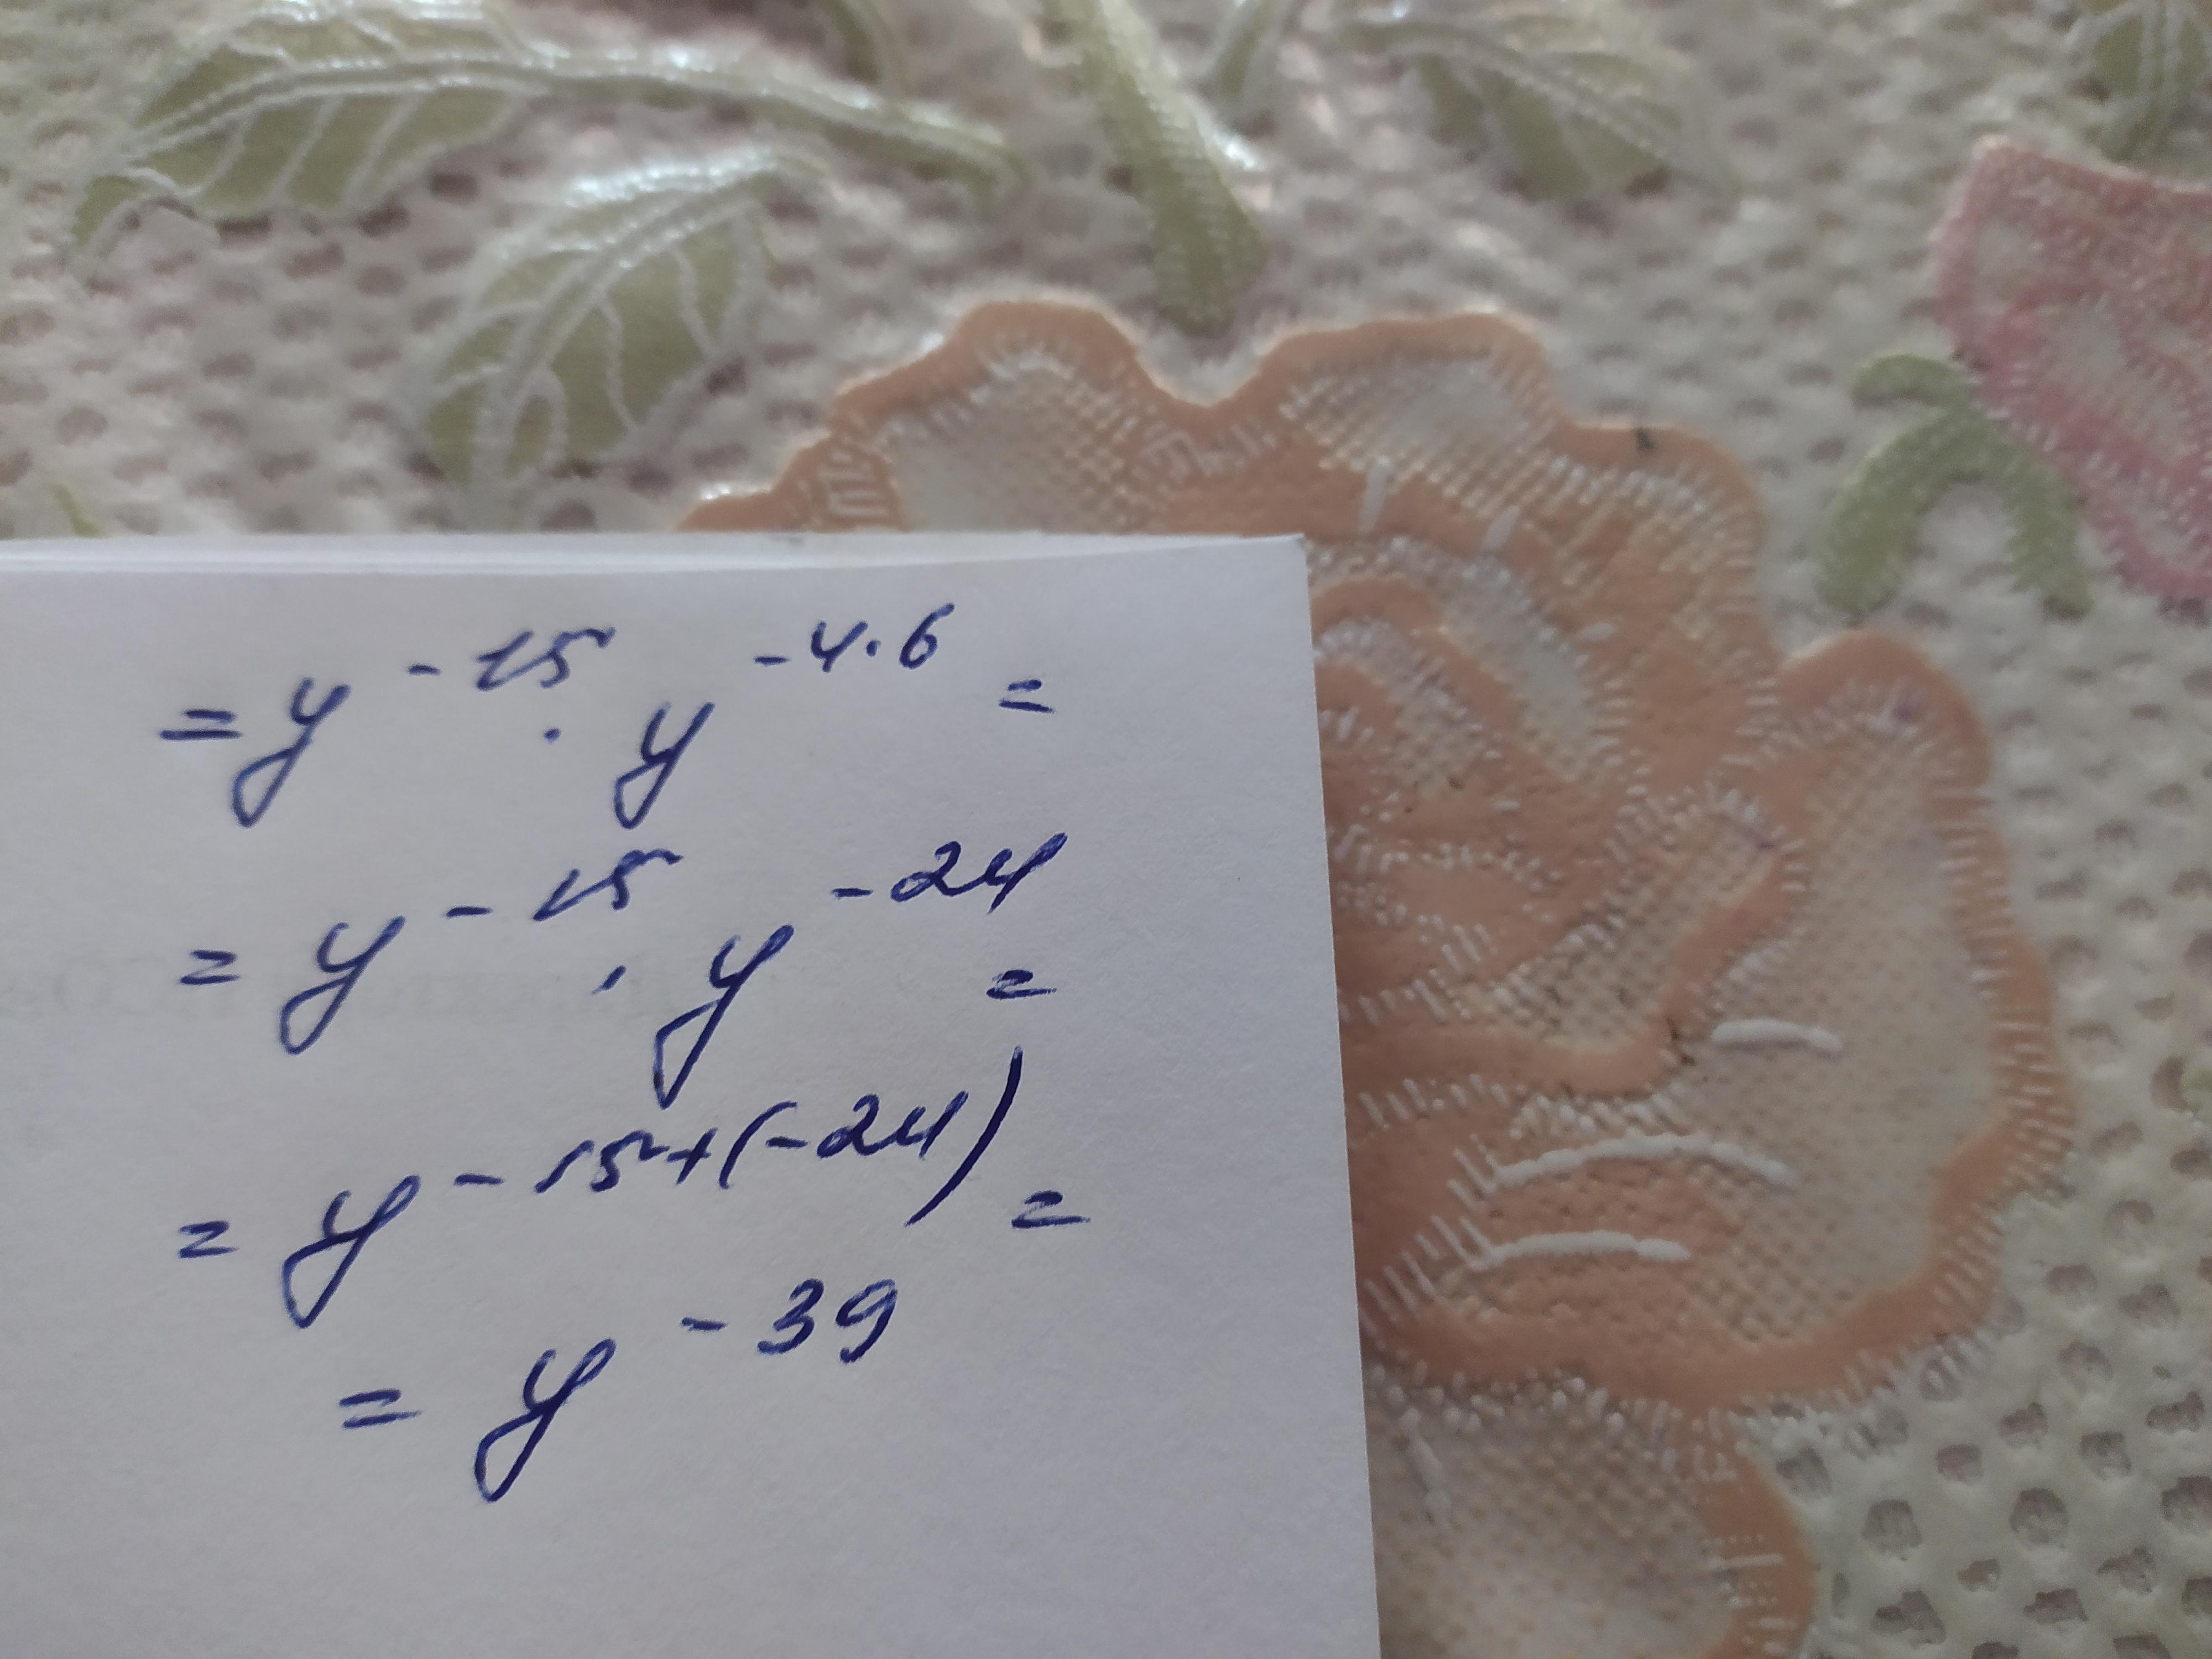 = y^-15 · y^-4·6 =
= y^-15 · y^-24 =
= y^-15+(-24) =
= y^-39